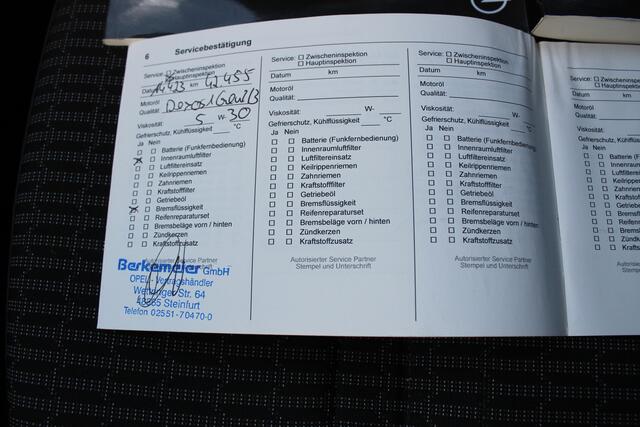 6 Servicebestätigung
Service: ☐ Zwischeninspektion
☐ Hauptinspektion
Datum km 42.455
Motoröl
Qualität: Dexos 1 Gen 3
Viskosität: 5 W- 30
Gefrierschutz, Kühlflüssigkeit °C
Ja Nein
☐ ☐ Batterie (Funkfernbedienung)
☒ ☐ Innenraumluftfilter
☐ ☐ Luftfiltereinsatz
☐ ☐ Keilrippenriemen
☐ ☐ Zahnriemen
☐ ☐ Kraftstofffilter
☐ ☐ Getriebeöl
☒ ☐ Bremsflüssigkeit
☐ ☐ Reifenreparaturset
☐ ☐ Bremsbeläge vorn / hinten
☐ ☐ Zündkerzen
☐ ☐ Kraftstoffzusatz
Autorisierter Service Partner
Berkemeier GmbH
OPEL - Vertragshändler
Str. 64
Steinfurt
Telefon 02551-70470-0
Service: ☐ Zwischeninspektion
☐ Hauptinspektion
Datum km
Motoröl
Qualität:
Viskosität: W-
Gefrierschutz, Kühlflüssigkeit °C
Ja Nein
☐ ☐ Batterie (Funkfernbedienung)
☐ ☐ Innenraumluftfilter
☐ ☐ Luftfiltereinsatz
☐ ☐ Keilrippenriemen
☐ ☐ Zahnriemen
☐ ☐ Kraftstofffilter
☐ ☐ Getriebeöl
☐ ☐ Bremsflüssigkeit
☐ ☐ Reifenreparaturset
☐ ☐ Bremsbeläge vorn / hinten
☐ ☐ Zündkerzen
☐ ☐ Kraftstoffzusatz
Autorisierter Service Partner
Stempel und Unterschrift
Service: ☐ Zwischeninspektion
☐ Hauptinspektion
Datum km
Motoröl
Qualität:
Viskosität: W-
Gefrierschutz, Kühlflüssigkeit °C
Ja Nein
☐ ☐ Batterie (Funkfernbedienung)
☐ ☐ Innenraumluftfilter
☐ ☐ Luftfiltereinsatz
☐ ☐ Keilrippenriemen
☐ ☐ Zahnriemen
☐ ☐ Kraftstofffilter
☐ ☐ Getriebeöl
☐ ☐ Bremsflüssigkeit
☐ ☐ Reifenreparaturset
☐ ☐ Bremsbeläge vorn / hinten
☐ ☐ Zündkerzen
☐ ☐ Kraftstoffzusatz
Autorisierter Service Partner
Stempel und Unterschrift
Service:
Datum
Motoröl
Qualität:
Viskosität:
Ja Nein